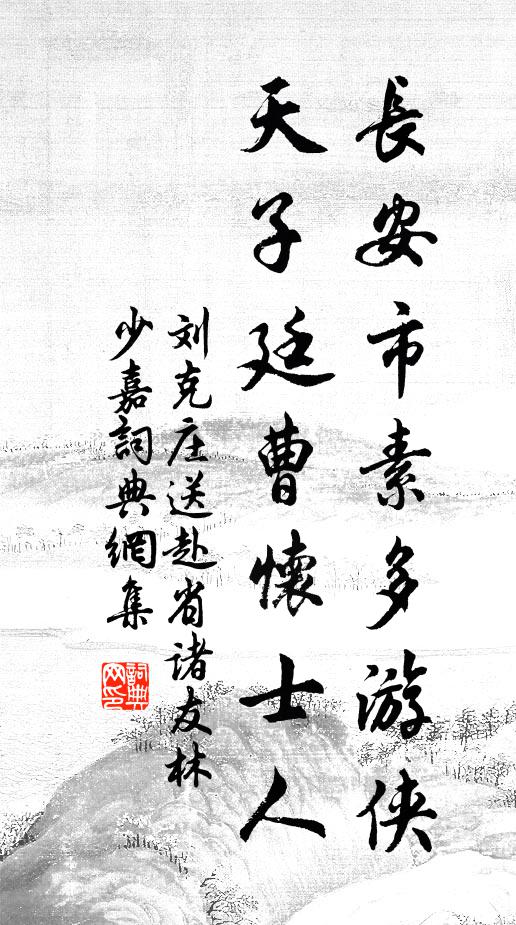 長安市素多游侠
天子廷曹懷士人
刘克庄送赴省诸友林
少嘉詞典網集
詞典
网印